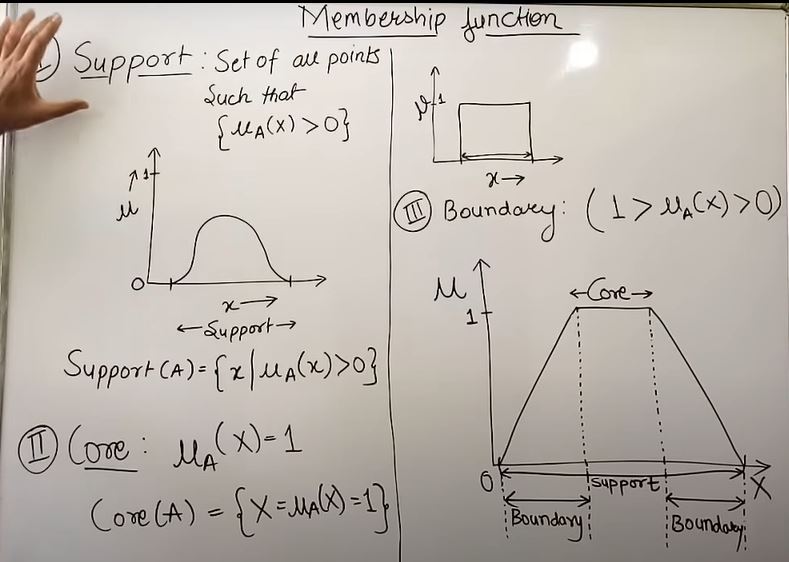 Membership function
I Support: Set of all points
Such that
{μA(x) > 0}
1
μ
0
x →
← Support →
Support(A) = {x | μA(x) > 0}
II Core: μA(X) = 1
Core(A) = {X = μA(X) = 1}
μ
1
x →
III Boundary: (1 > μA(x) > 0)
μ
← Core →
1
0
support
X
Boundary
Boundary